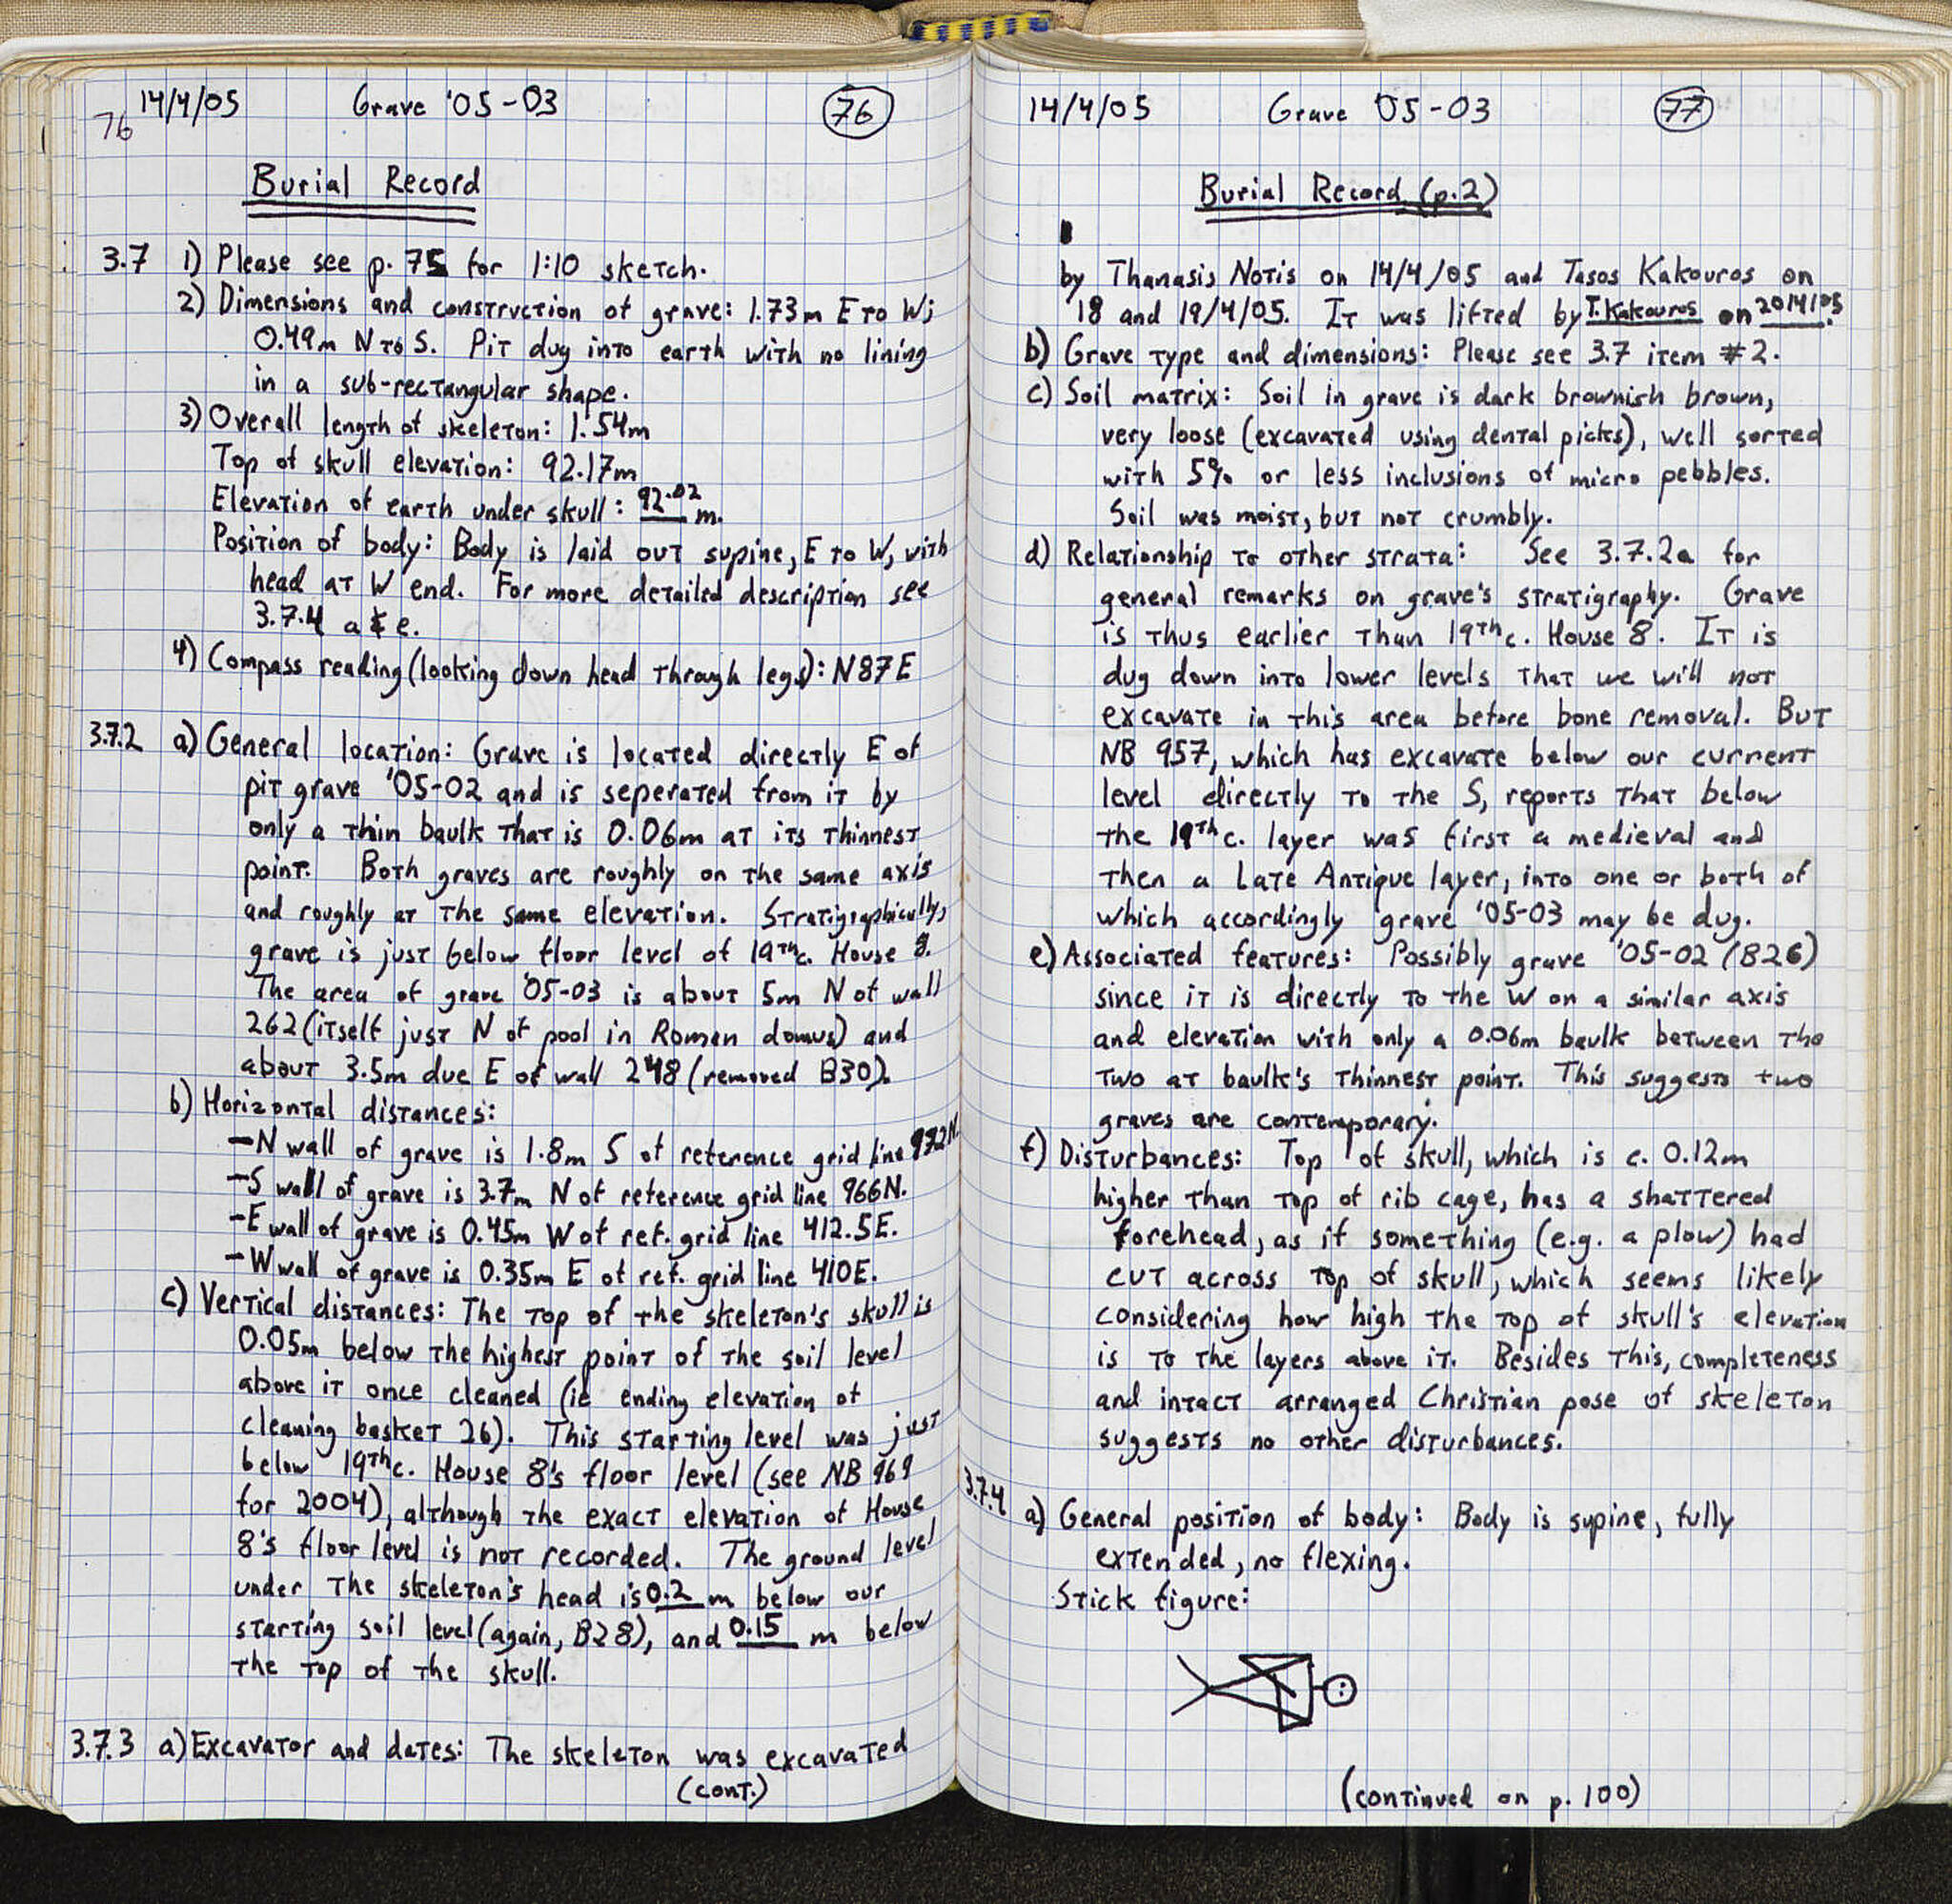 76
14/4/05 Grave '05-03 76
Burial Record
3.7 1) Please see p. 75 for 1:10 sketch.
2) Dimensions and construction of grave: 1.73m E to W;
0.49m N to S. Pit dug into earth with no lining
in a sub-rectangular shape.
3) Overall length of skeleton: 1.54m
Top of skull elevation: 92.17m
Elevation of earth under skull: 92.02 m.
Position of body: Body is laid out supine, E to W, with
head at W end. For more detailed description see
3.7.4 a & e.
4) Compass reading (looking down head through legs): N87E
3.7.2 a) General location: Grave is located directly E of
pit grave '05-02 and is seperated from it by
only a thin baulk that is 0.06m at its thinnest
point. Both graves are roughly on the same axis
and roughly at the same elevation. Stratigraphically,
grave is just below floor level of 19th c. House 8.
The area of grave '05-03 is about 5m N of wall
262 (itself just N of pool in Roman domus) and
about 3.5m due E of wall 248 (removed B30).
b) Horizontal distances:
-N wall of grave is 1.8m S of reference grid line 972N.
-S wall of grave is 3.7m N of reference grid line 966N.
-E wall of grave is 0.45m W of ref. grid line 412.5E.
-W wall of grave is 0.35m E of ref. grid line 410E.
c) Vertical distances: The top of the skeleton's skull is
0.05m below the highest point of the soil level
above it once cleaned (ie ending elevation of
cleaning basket 26). This starting level was just
below 19th c. House 8's floor level (see NB 969
for 2004), although the exact elevation of House
8's floor level is not recorded. The ground level
under the skeleton's head is 0.2 m below our
starting soil level (again, B28), and 0.15 m below
the top of the skull.
3.7.3 a) Excavator and dates: The skeleton was excavated
(cont.)
14/4/05 Grave '05-03 77
Burial Record (p.2)
by Thanasis Notis on 14/4/05 and Tasos Kakouros on
18 and 19/4/05. It was lifted by T. Kakouros on 20/4/05.
b) Grave type and dimensions: Please see 3.7 item #2.
c) Soil matrix: Soil in grave is dark brownish brown,
very loose (excavated using dental picks), well sorted
with 5% or less inclusions of micro pebbles.
Soil was moist, but not crumbly.
d) Relationship to other strata: See 3.7.2a for
general remarks on grave's stratigraphy. Grave
is thus earlier than 19th c. House 8. It is
dug down into lower levels that we will not
excavate in this area before bone removal. But
NB 957, which has excavate below our current
level directly to the S, reports that below
the 19th c. layer was first a medieval and
then a Late Antique layer, into one or both of
which accordingly grave '05-03 may be dug.
e) Associated features: Possibly grave '05-02 (826)
since it is directly to the W on a similar axis
and elevation with only a 0.06m baulk between the
two at baulk's thinnest point. This suggests two
graves are contemporary.
f) Disturbances: Top of skull, which is c. 0.12m
higher than top of rib cage, has a shattered
forehead, as if something (e.g. a plow) had
cut across top of skull, which seems likely
considering how high the top of skull's elevation
is to the layers above it. Besides this, completeness
and intact arranged Christian pose of skeleton
suggests no other disturbances.
3.7.4 a) General position of body: Body is supine, fully
extended, no flexing.
Stick figure:
(continued on p. 100)